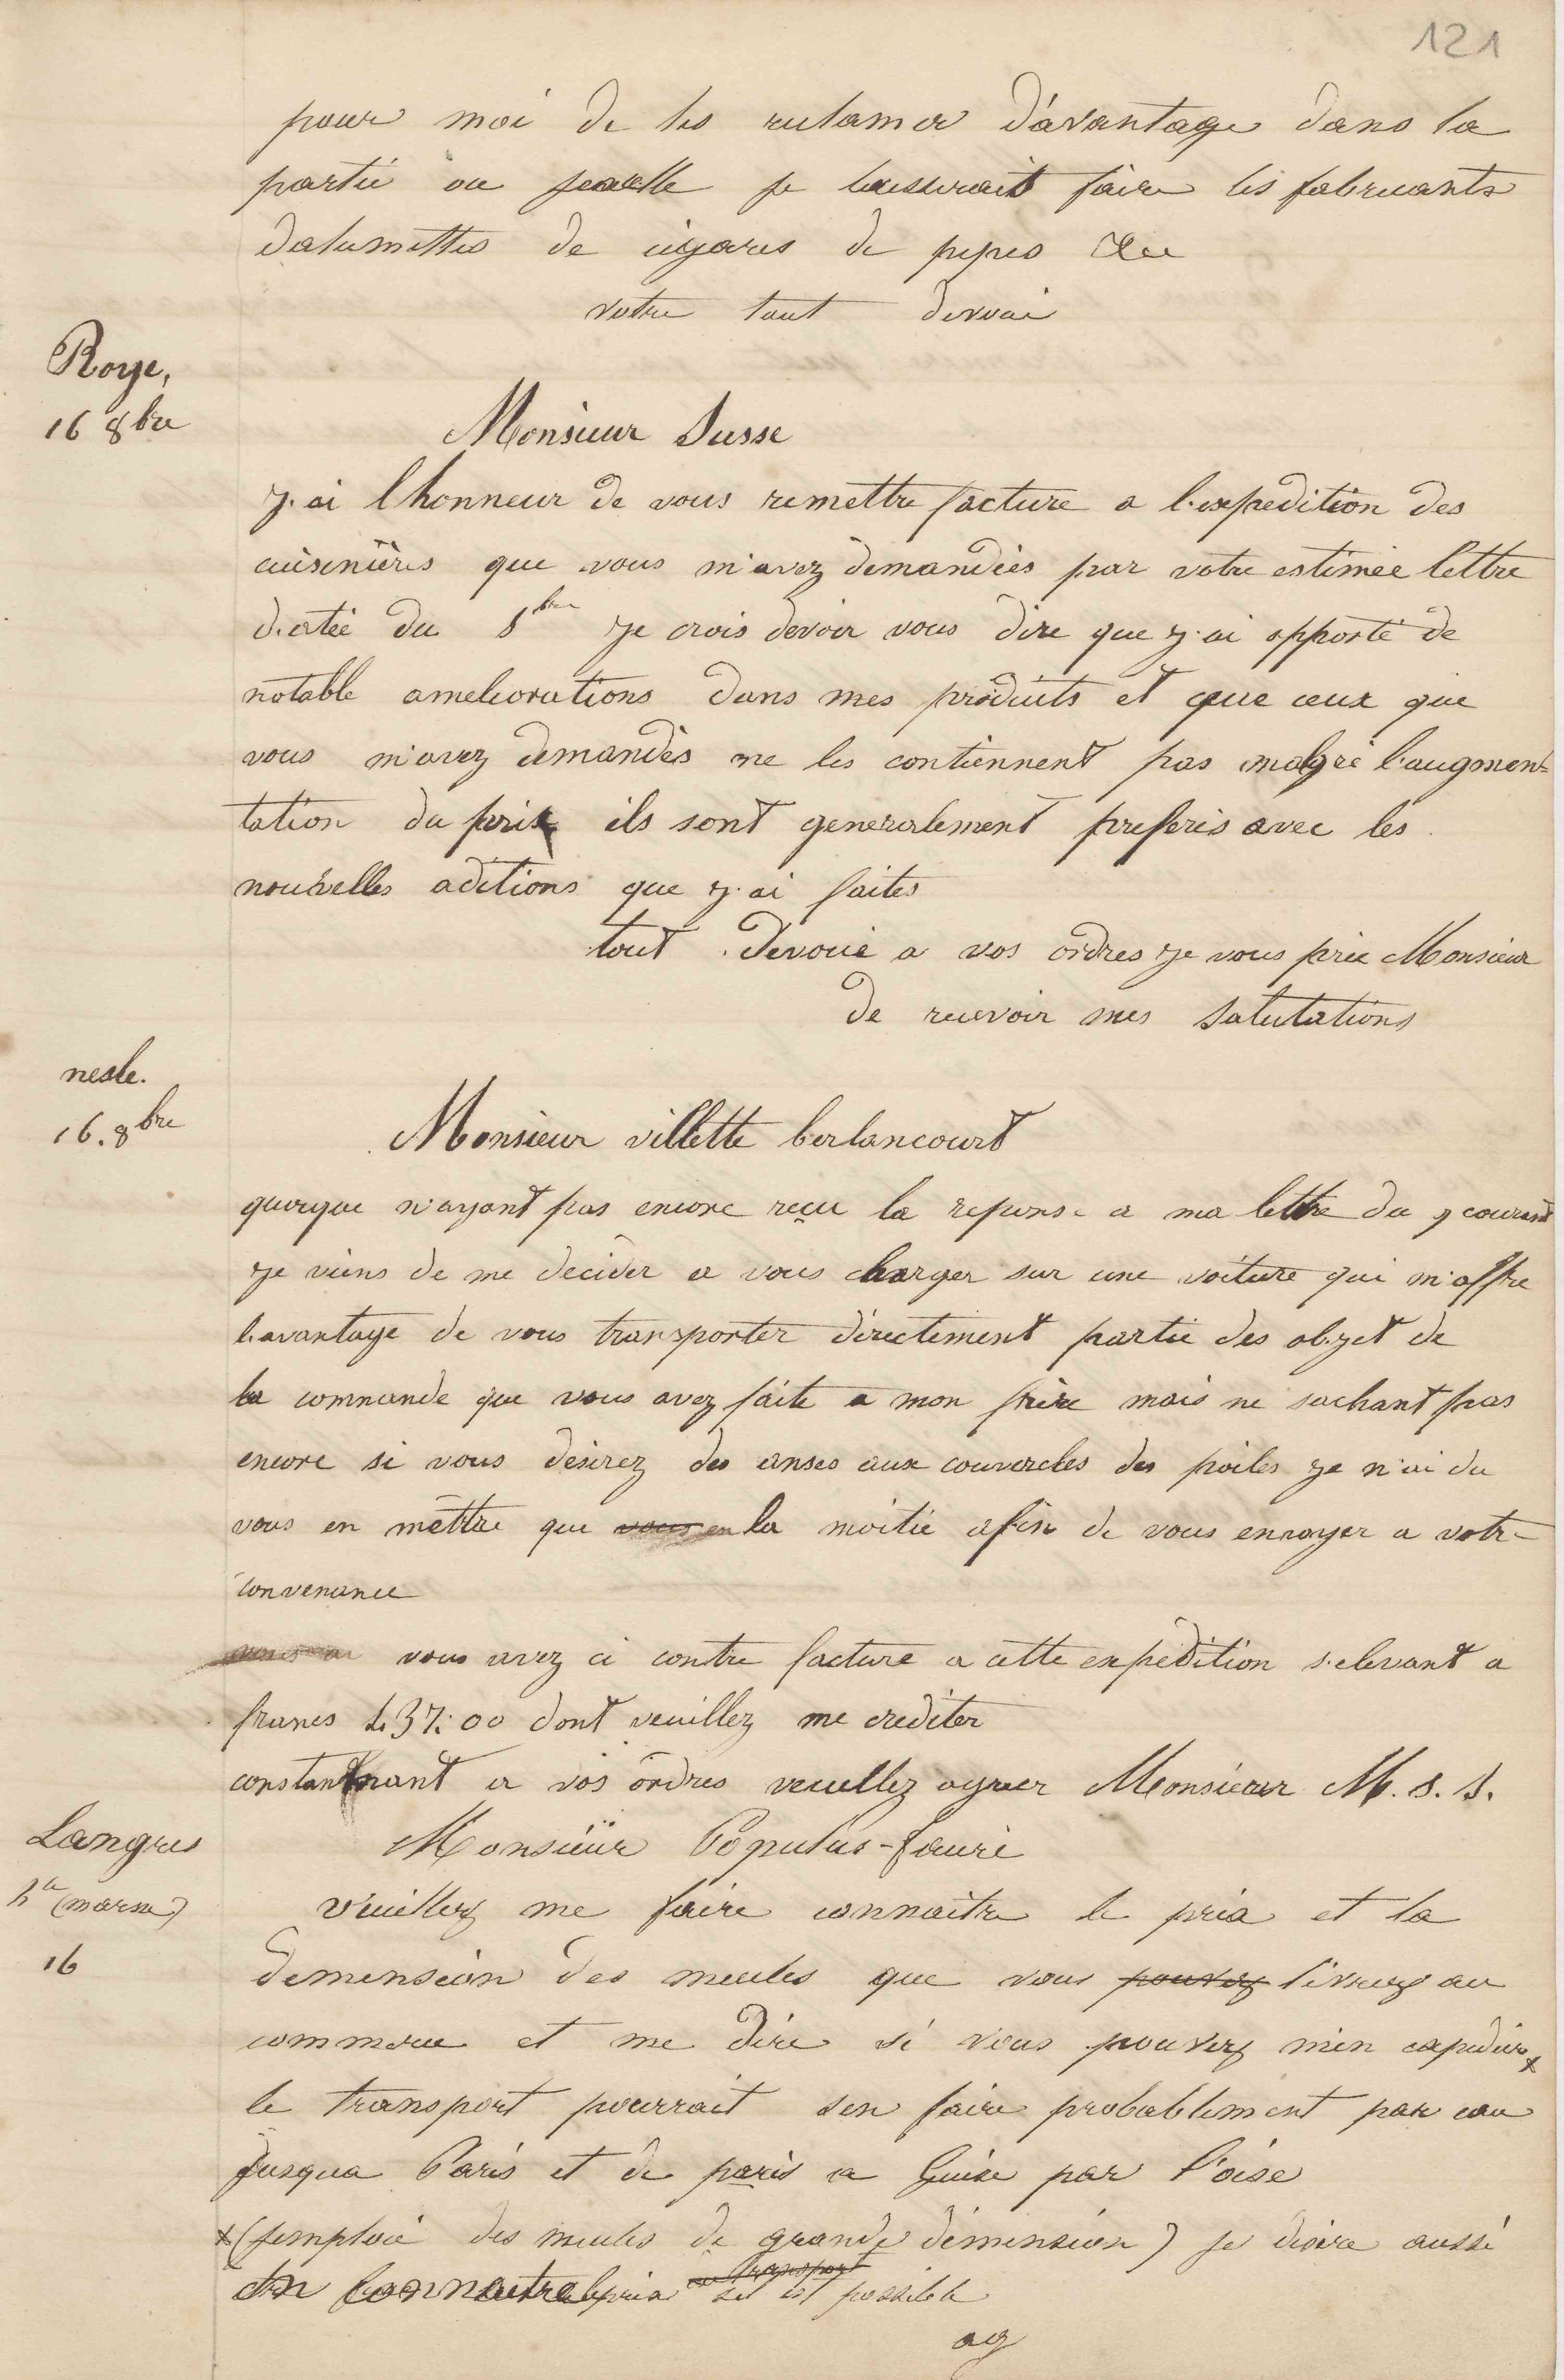 121
pour moi de les reclamer d'avantage dans la
partie ou je laisserait faire les fabricants
dalumettes de cigares de pipes &c
votre tout devoué
Roye,
16 8bre
Monsieur Susse
j'ai lhonneur de vous remettre facture a l'expedition des
cuisinières que vous m'avez demandées par votre estimée lettre
datée du 8bre je crois devoir vous dire que j'ai apporté de
notable ameliorations dans mes produits et que ceux que
vous m'avez demandés ne les contiennent pas malgré l'augmen=
tation du prix ils sont generalement preferés avec les
nouvelles aditions que j'ai faites
tout devoué a vos ordres je vous prie Monsieur
de recevoir mes salutations
nesle.
16. 8bre
Monsieur villette berlancourt
quoique n'ayant pas encore reçu la reponse a ma lettre du 9 courant
je viens de me decider a vous charger sur une voiture qui m'offre
l'avantage de vous transporter directement partie des objet de
la commande que vous avez faite a mon frère mais ne sachant pas
encore si vous desirez des anses aux couvercles des poiles je n'ai du
vous en mettre que vous en la moitié afin de vous envoyer a votre
convenance
vous avez ci contre facture a cette expedition s'elevant a
francs 437:00 dont veuillez me crediter
constantmant a vos ordres veuillez agreer Monsieur M. s. s.
Langres
hte (marne)
16
Monsieur Populus-faure
veuillez me faire connaitre le prix et la
demension des meules que vous pouvez livrez au
commerce et me dire si vous pouvez m'en expedier x
le transport pourrait sen faire probablement par eau
jusqua Paris et de paris a Guise par l'oise
x (jemploie des meules de grande dimension) je desire aussi
en connaitre le prix au transport sil est possible
ag